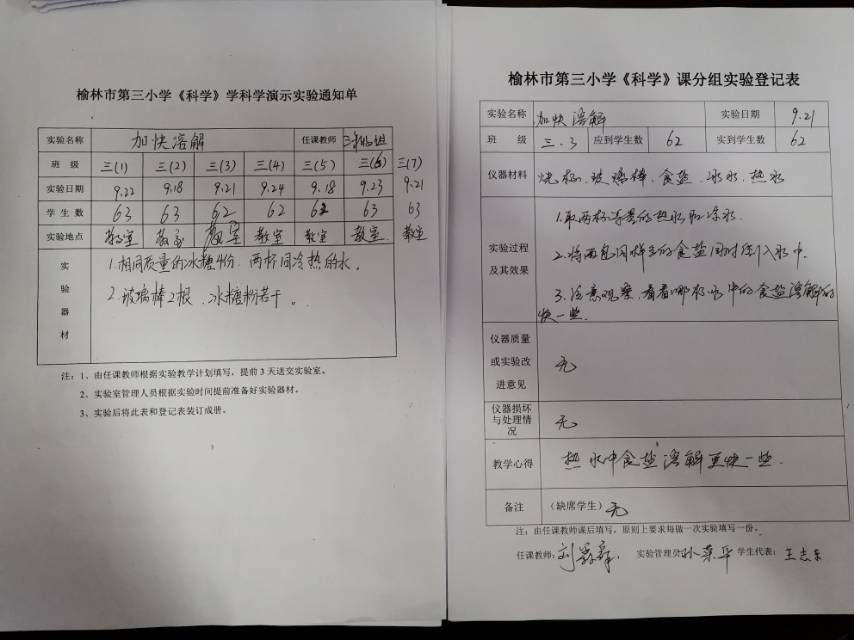 榆林市第三小学《科学》学科学演示实验通知单
实验名称 加快溶解 任课教师
班 级 三(1) 三(2) 三(3) 三(4) 三(5) 三(6) 三(7)
实验日期 9.22 9.18 9.21 9.24 9.18 9.23 9.21
学 生 数 63 63 62 62 62 63 63
实验地点 教室 教室 教室 教室 教室 教室 教室
实验器材
1.相同质量的冰糖4份、两杯同冷热的水。
2.玻璃棒2根、冰糖粉若干。
注：1、由任课教师根据实验教学计划填写，提前3天送交实验室。
2、实验室管理人员根据实验时间提前准备好实验器材。
3、实验后将此表和登记表装订成册。
榆林市第三小学《科学》课分组实验登记表
实验名称 加快溶解 实验日期 9.21
班 级 三.3 应到学生数 62 实到学生数 62
仪器材料 烧杯、玻璃棒、食盐、冰水、热水
实验过程及其效果
1.取两杯等量的热水和凉水.
2.将两包同样多的食盐同时倒入水中.
3.注意观察,看看哪杯水中的食盐溶解的
快一些.
仪器质量
或实验改
进意见
无
仪器损坏
与处理情
况
无
教学心得 热水中食盐溶解更快一些.
备注 （缺席学生）无
注：由任课教师课后填写，原则上要求每做一次实验填写一份。
任课教师: 刘 实验管理员 学生代表: 王志东